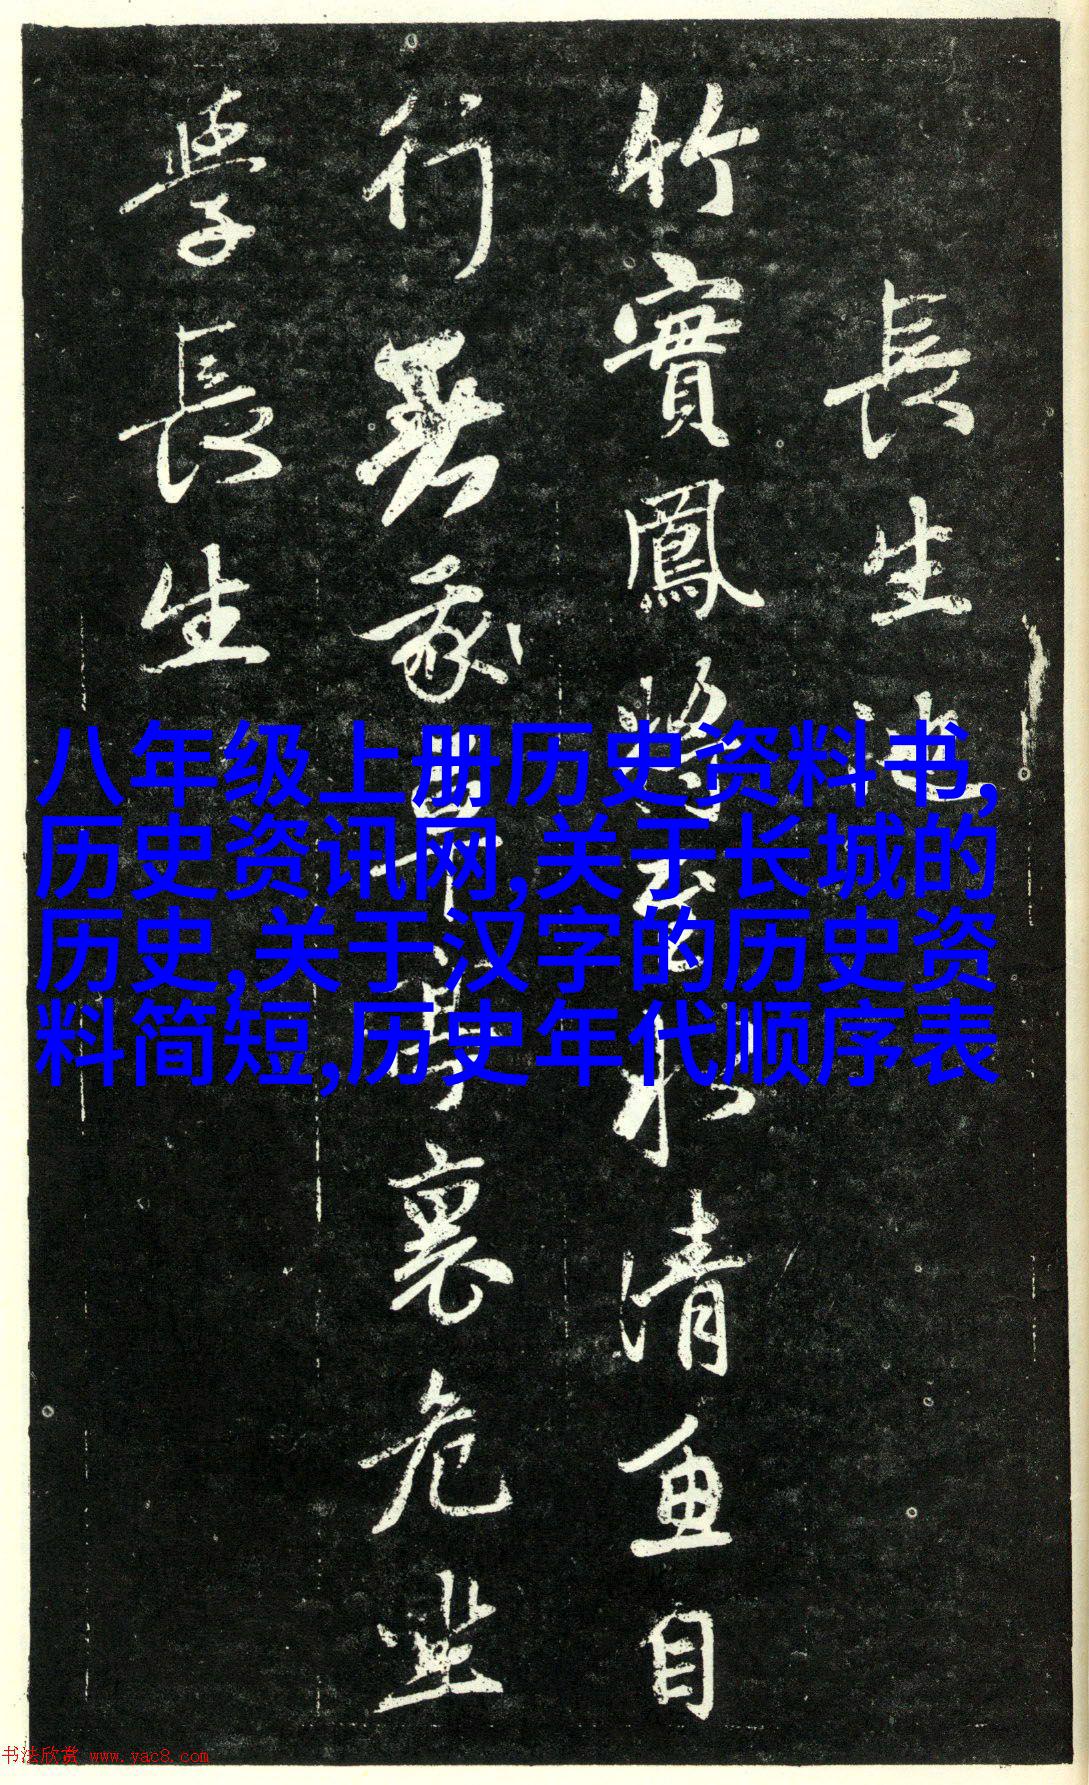 長生池
竹實鳳將至水清魚自
行 裏危坐
學長生
八年级上册历史资料书,
历史资讯网,关于长城的
历史,关于汉字的历史资
料简短,历史年代顺序表
书法欣赏 www.yac8.com